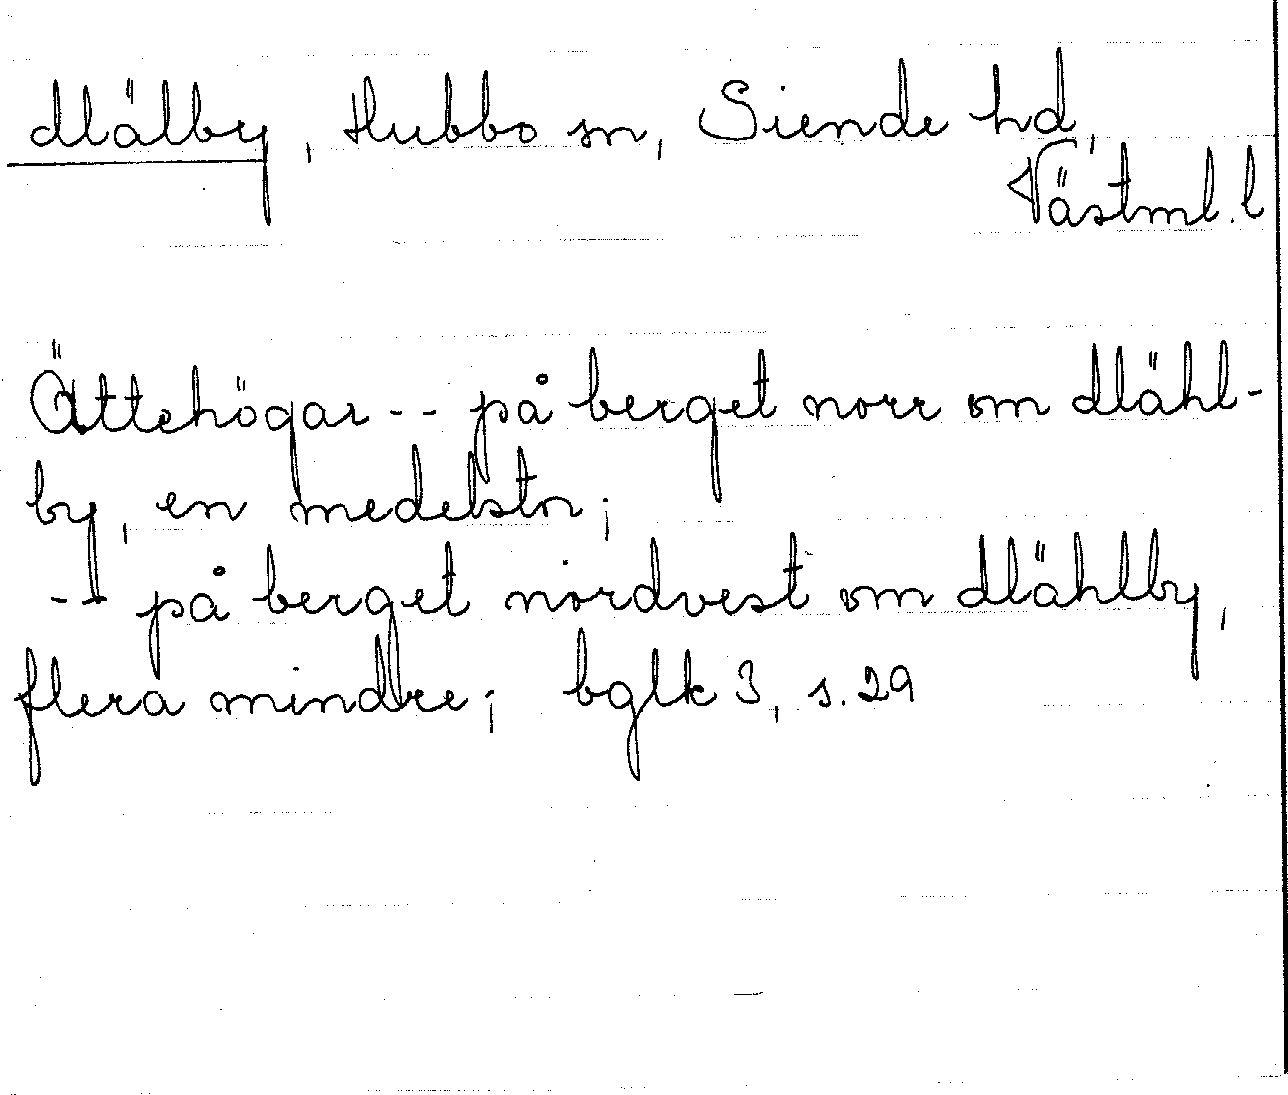 Mälby, Hubbo sn, Siende hd,
Västml. l
Ättehögar -- på berget norr om Mähl-
by, en medelstor;
-- på berget nordvest om Mählby,
flera mindre; bglk 3, s. 29